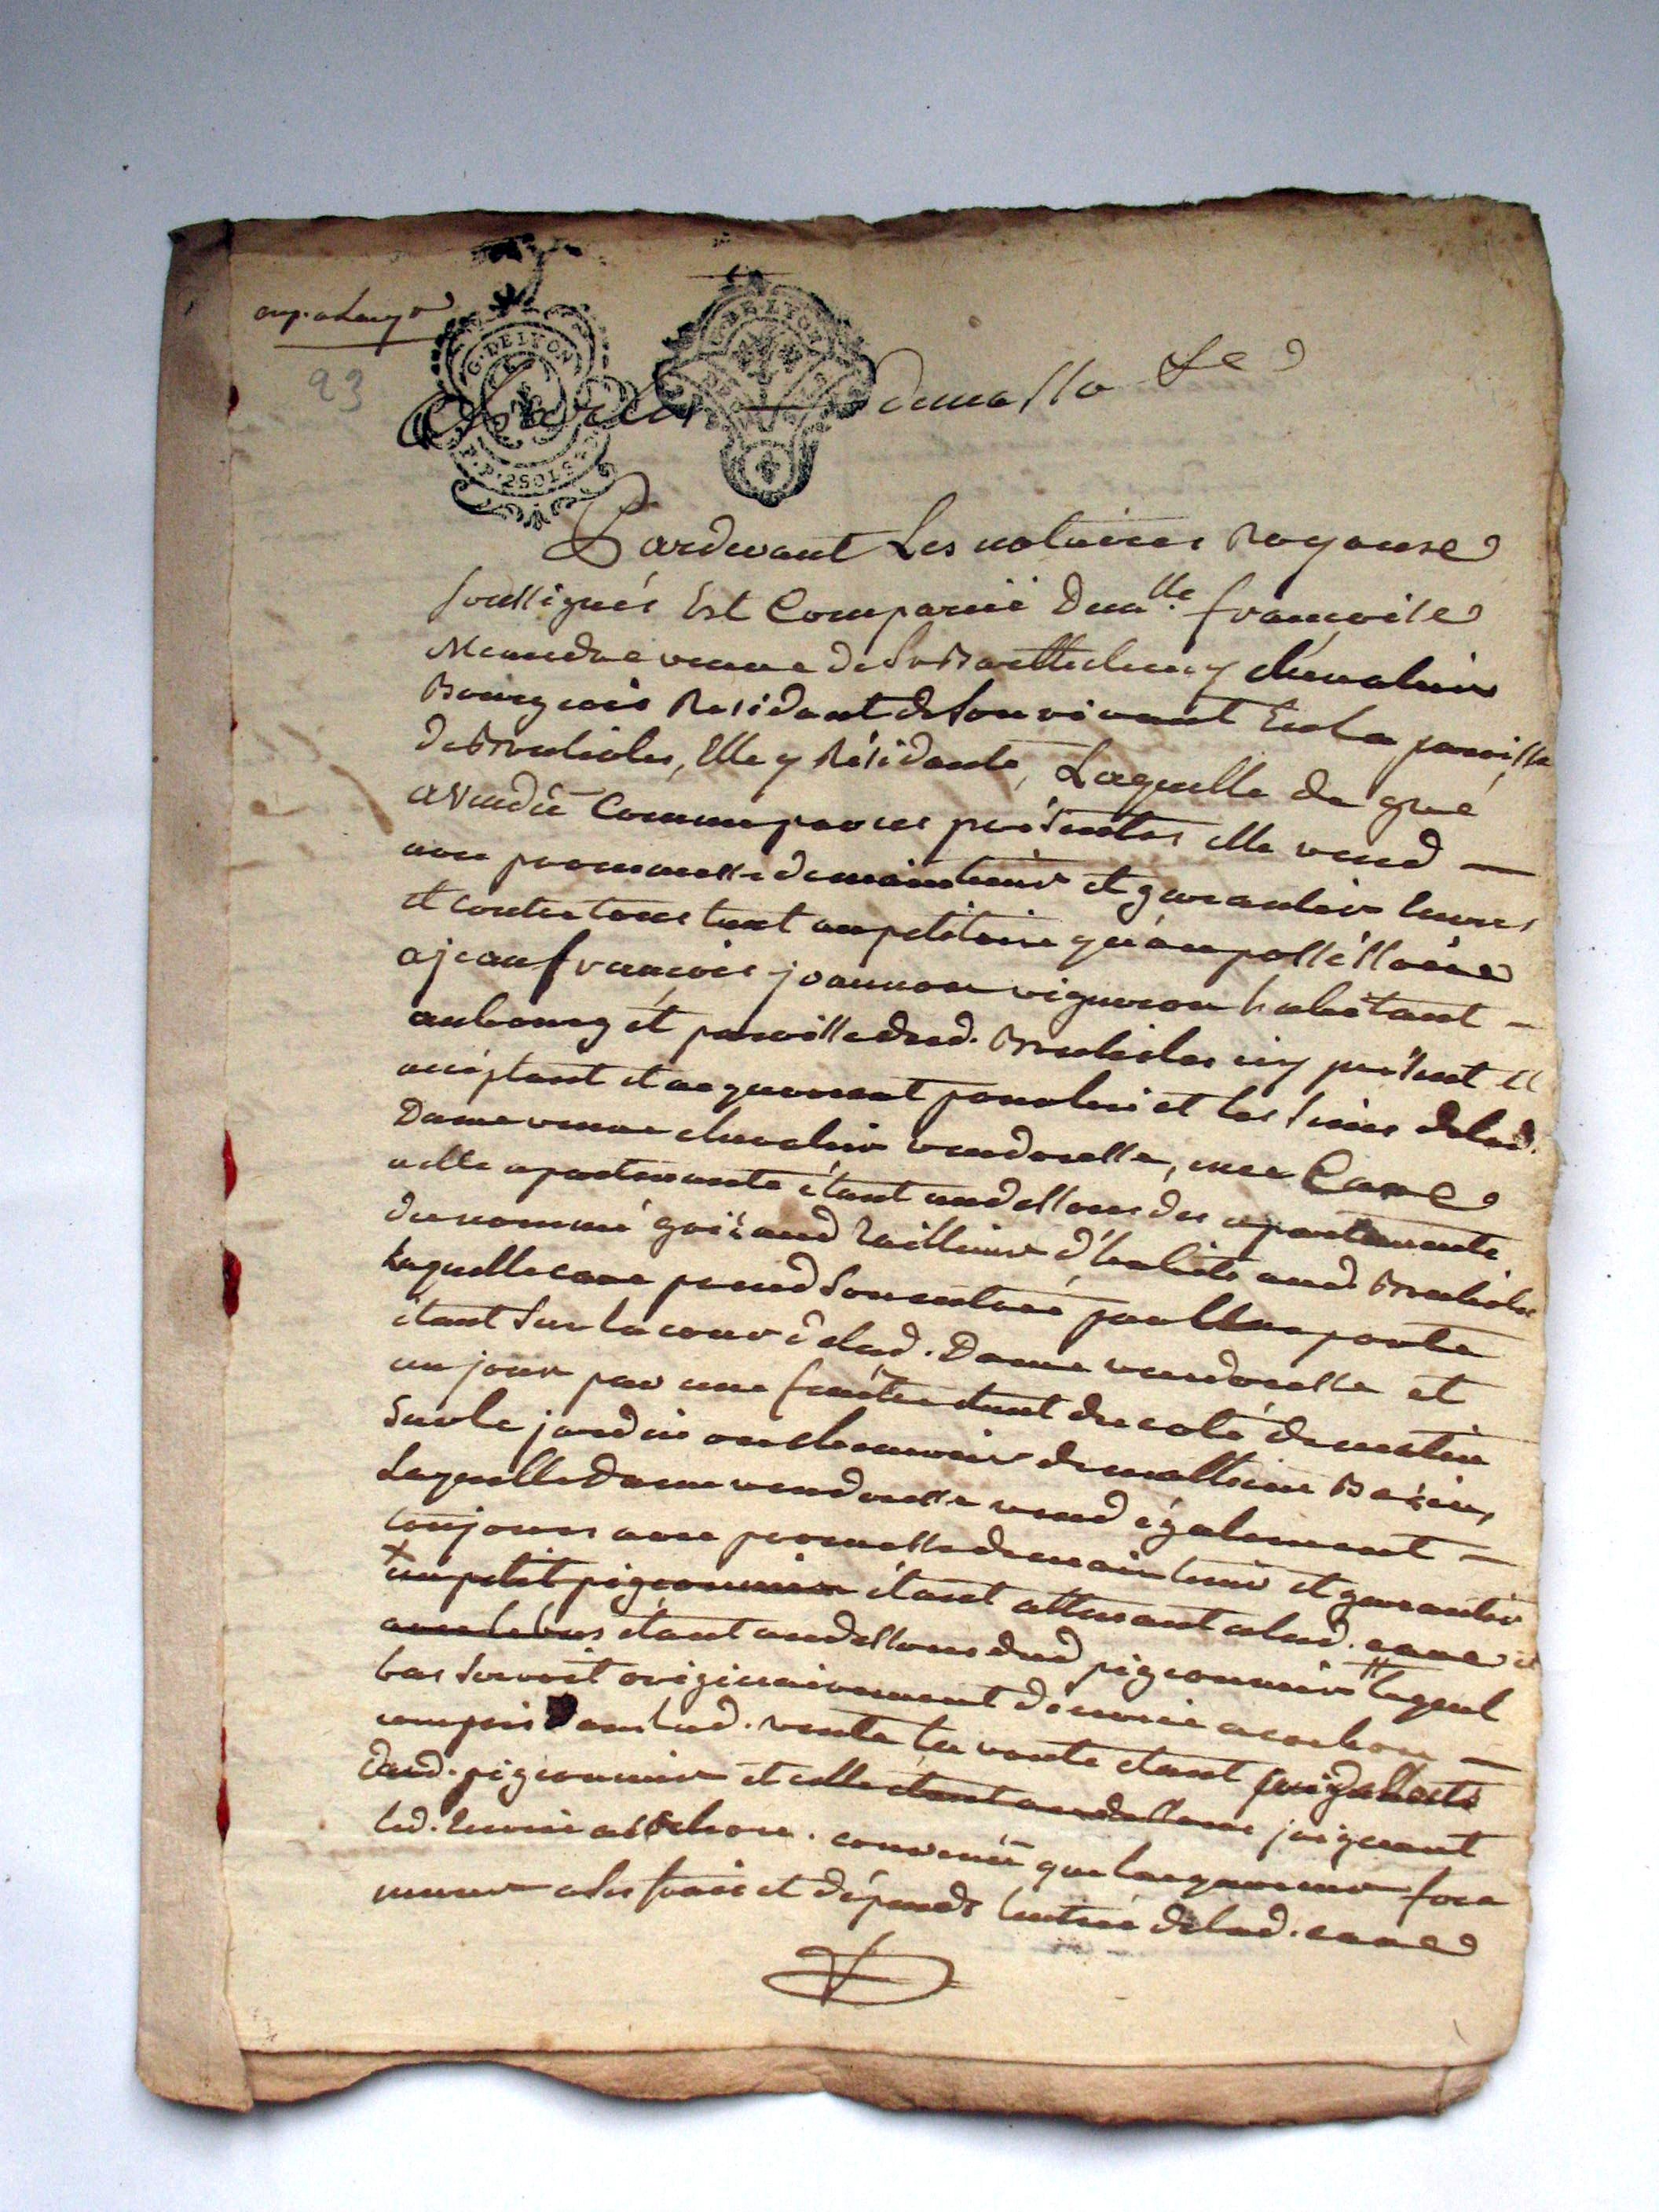 93
G. DE LYON
P.P. 2 SOLS
G. DE LYON
Pardevant Les notaires Royaux
soussignés Est Comparüe Dem.lle françoise
veuve de Sr Barthelemy chevalier
Bourgeois Residant de son vivant En la paroisse
de Brulioles, Elle y Résidante, Laquelle de gré
a vendû Comme par ces présentes elle vend —
avec promesse de maintenir et garantir envers
et contre tous tant au petitoire qu'au possessoire
a jean françois joannon vigneron habitant —
au bourg et paroisse dud. Brulioles icy présent et
acceptant et acquerant pour lui et les siens de lad.
Dame veuve chevalier venderesse, une Cave
a elle apartenante étant audessous des apartements
du nommé tailleur d'habits aud. Brulioles
Laquelle cave prend son entrée par une porte
étant sur la cour de lad. Dame venderesse et
un jour par une fenêtre étant du coté de matin
sur le jardin ou chenevier de Bazin,
Laquelle Dame venderesse vend également —
toujours avec promesse de maintenir et garantir
x un petit pigeonnier étant attenant a lad. cave et
avec le bas étant audessous dud pigeonnier lequel
bas servoit originairement d'écurie a cochon —
compris dans lad. vente la voute étant
dud. pigeonnier et celle étant audessous joignant
lad. Ecurie a cochon. convenû que l'acquereur fera
murer a ses frais et dépends l'entrée de lad. cave